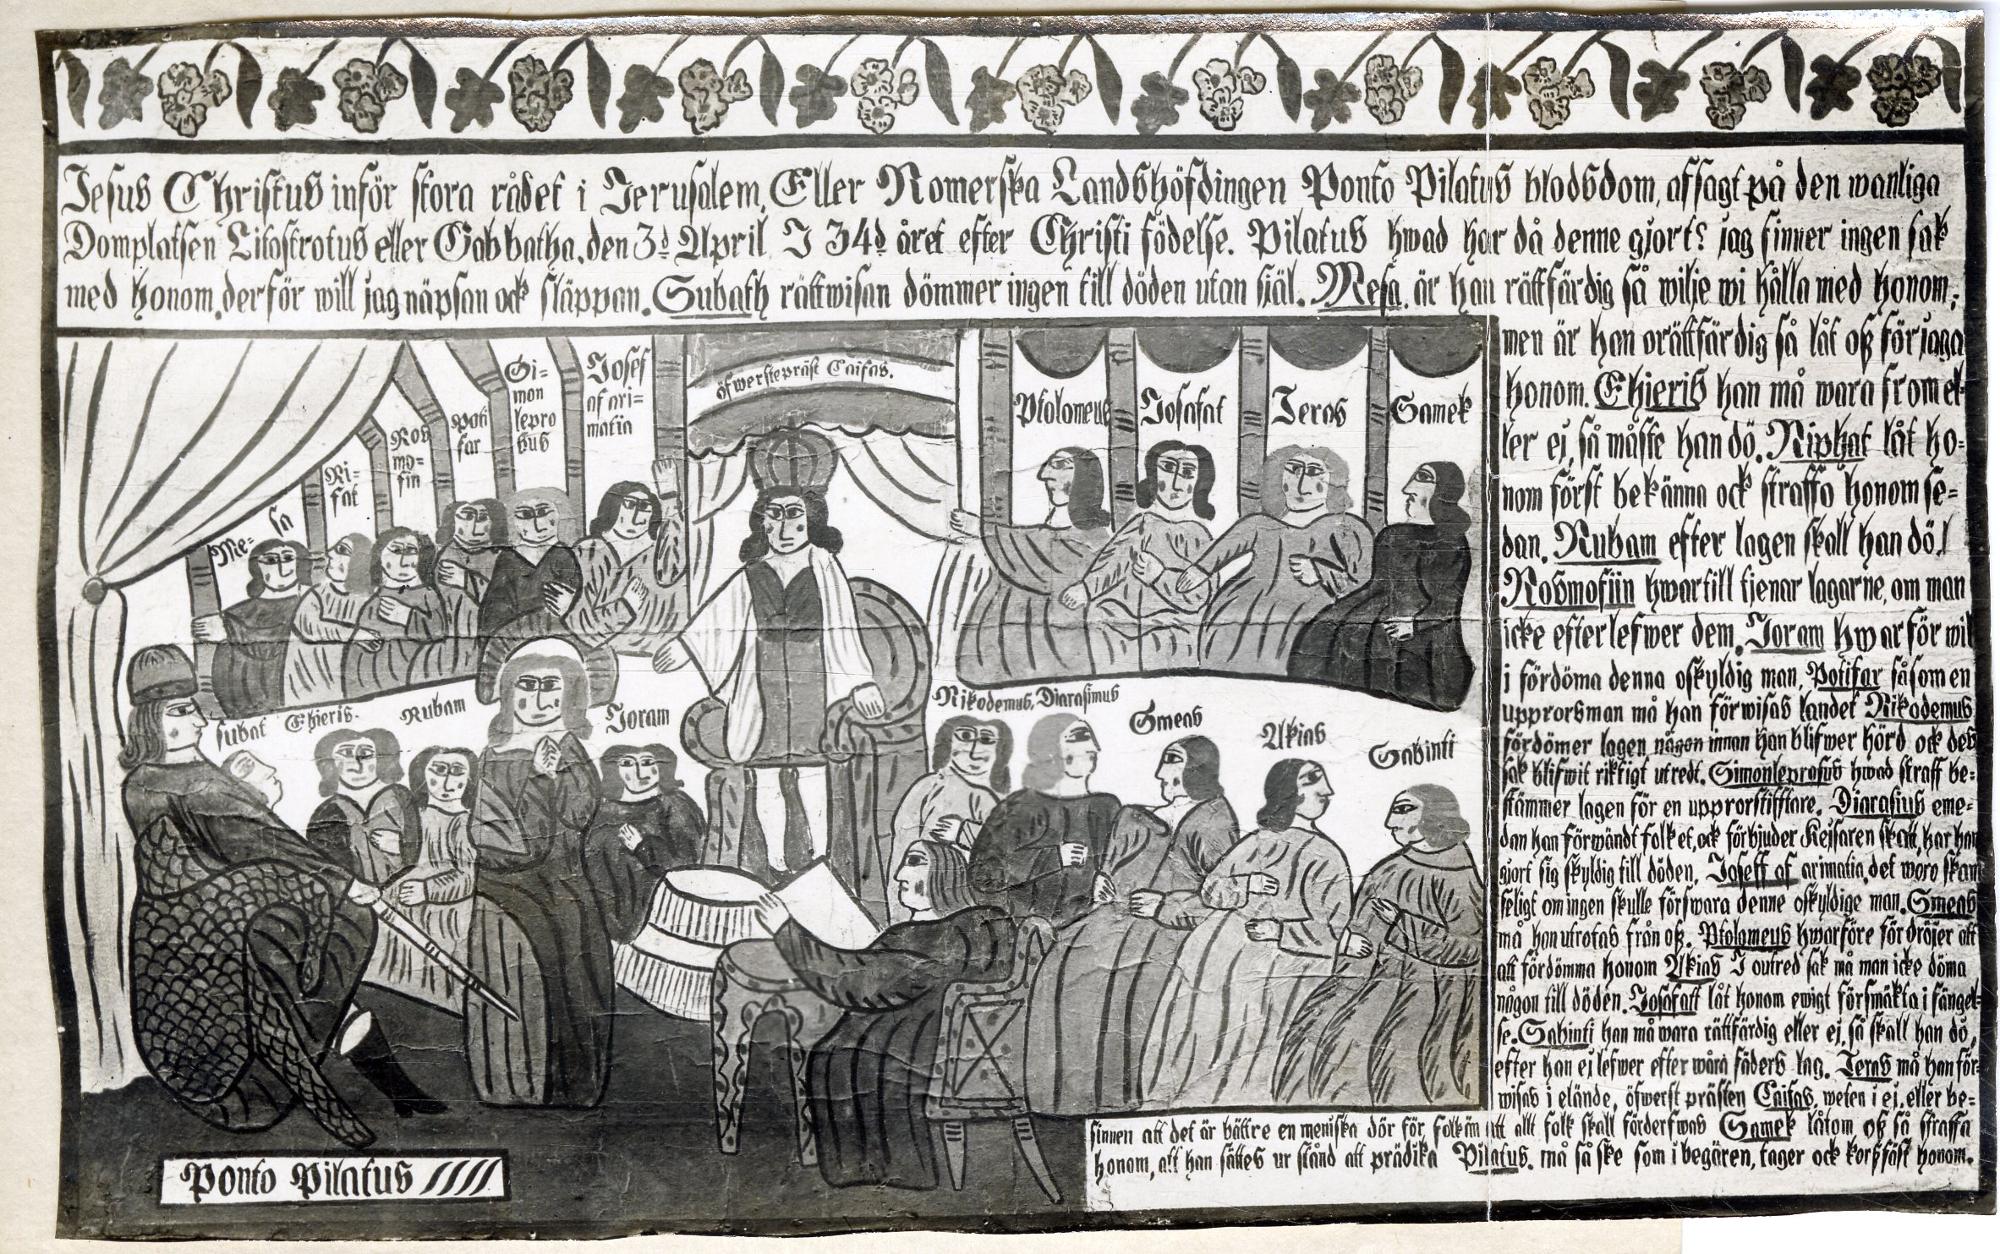 Jesus Christus inför stora rådet i Jerusalem, Eller Romerska Landshöfdingen Ponto Pilatus blodsdom, afsagt på den wanliga
Domplatsen Litostrotus eller Gabbatha, den 3d April I 34d året efter Christi födelse. Pilatus hwad har då denne gjort? jag finner ingen sak
med honom, derför will jag näpsan ock släppan. Subath rättwisan dömmer ingen till döden utan själ. Mesa. är han rättfärdig så wilje wi hålla med honom;
men är han orättfärdig så låt oß förjaga
honom. Ehieris han må wara from el-
ler ej, så måste han dö. Riphat låt ho-
nom först bekänna ock straffa honom se-
dan. Rubam efter lagen skall han dö.
Rosmofiin hwartill tjenar lagarne, om man
icke efterlefwer dem. Joram hwarför wil
i fördöma denna oskyldig man. Potifar såsom en
upprorsman må han förwisas landet Nikodemus
fördömer lagen någon innan han blifwer hörd ock des
sak blifwit riktigt utredt. Simonleprosus hwad straff be-
stämmer lagen för en upprorstifttare. Diarasius eme-
dan han förwändt folket, ock förbjuder Kejsaren skatt, har han
gjort sig skyldig till döden. Joseff af arimatia, det woro skam
seligt om ingen skulle förswara denne oskyldige man. Smeas
må han utrotas från oß. Ptolomeus hwarföre fördröjer att
att fördömma honom Akias I outred sak må man icke döma
någon till döden. Josafatt låt honom ewigt försmäkta i fängel-
se. Sabinti han må wara rättfärdig eller ej, så skall han dö,
efter han ej lefwer efter wåra fäders lag. Jeras må han för-
wisas i elände, öfwerst prästen Caifas, weten i ej, eller be-
sinnen att det är bättre en meniska dör för folk än att allt folk skall förderfwas Samek låtom oß så straffa
honom, att han sättes ur stånd att prädika Pilatus. må så ske som i begären, tager ock korßfäst honom.
öfwerstepräst Caifas.
Me-
sa
Ri-
fat
Ros
mo=
fin
Poti
far
Si=
mon
lepro
sus
Josef
af ari=
matia
Ptolomeus
Josafat
Jeras
Samek
subat
Ehieris.
Rubam
Joram
Nikodemus, Diarasimus
Smeas
Akias
Sabinti
Ponto Pilatus